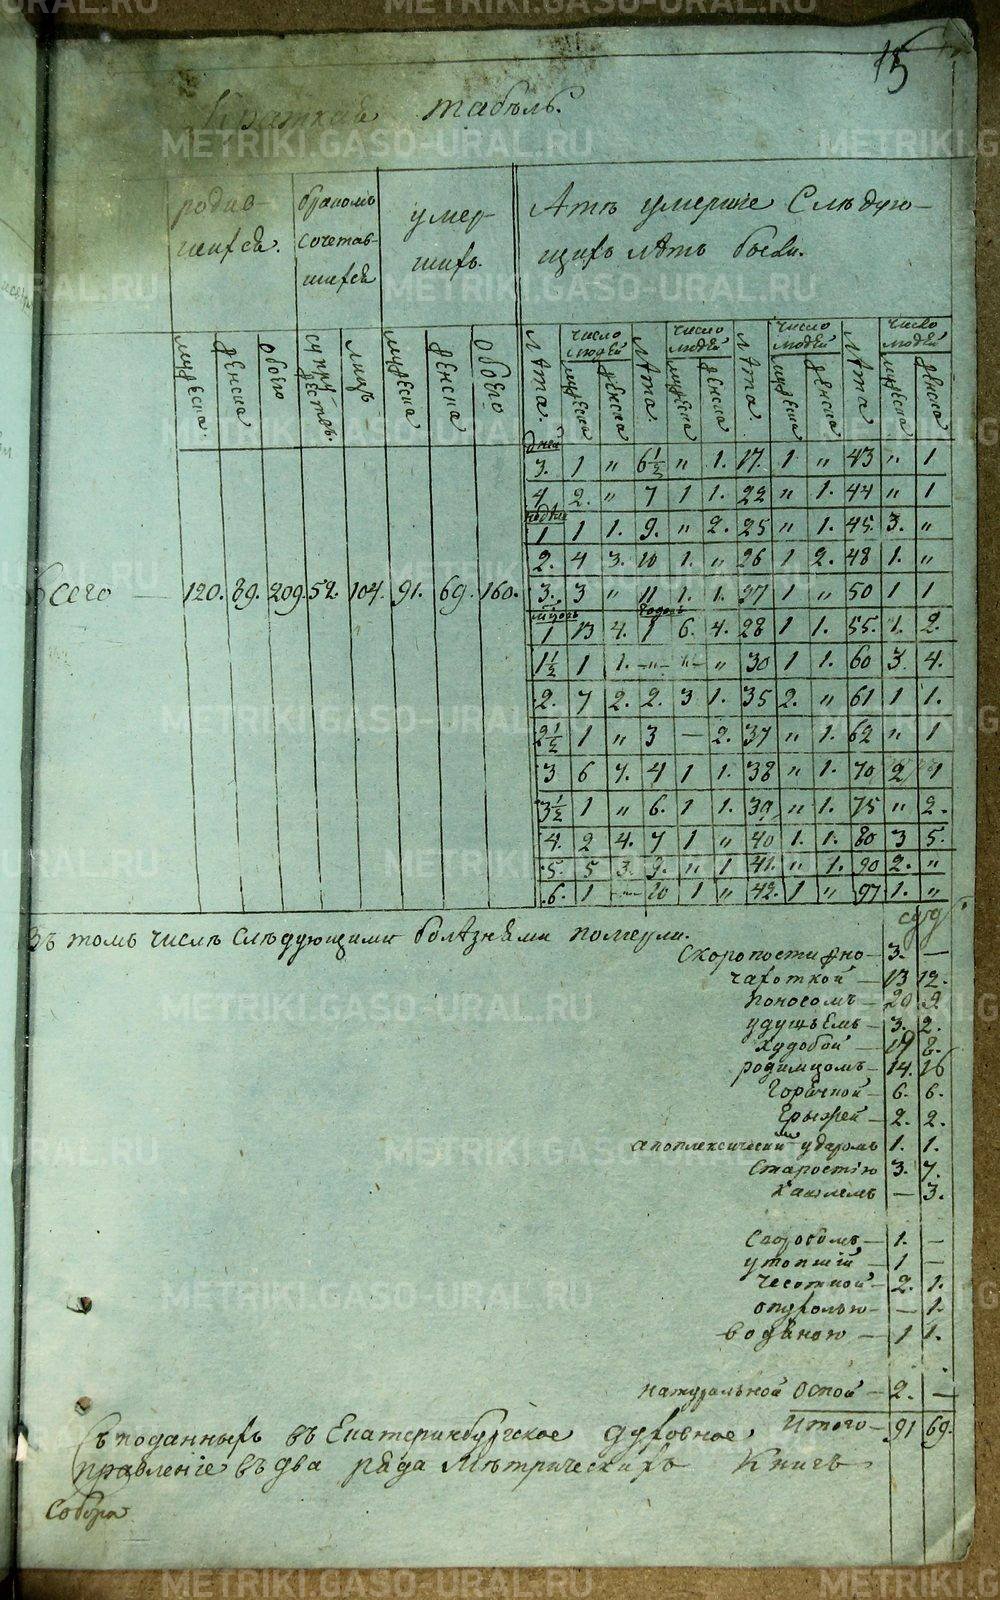 15
Краткая табель.
родив- бракомъ умер- А тѣ умершіе Слѣдую-
шихся. сочетав- шихъ. щихъ лѣтъ были.
шихся
мужеска женска обоего супружествъ. лицъ мужеска женска обоего Лѣта. число людей мужеска женска Лѣта. число людей мужеска женска Лѣта число людей мужеска женска Лѣта число людей мужеска женска
дней
3. 1 " 6½ " 1. 17. 1 " 43 " 1
4 2. " 7 1 1. 22 " 1. 44 " 1
недѣли
1 1 1. 9. " 2. 25 " 1. 45. 3. "
2. 4 3. 10 1. " 26 1 2. 48 1. "
Всего — 120. 89. 209. 52. 104. 91. 69. 160. 3. 3 " 11 1. 1. 27 1 " 50 1 1
мѣсяцъ годовъ
1 13 4. 1 6. 4. 28 1 1. 55. 1. 2.
1½ 1 1. — " — " — " 30 1 1. 60 3. 4.
2. 7 2. 2. 3 1. 35 2. " 61 1 1.
2½ 1 " 3 — 2. 37 " 1. 62 " 1
3 6 7. 4 1 1. 38 " 1. 70 2 1
3½ 1 " 6. 1 1. 39 " 1. 75 " 2.
4. 2 4. 7 1 " 40 1. 1. 80 3 5.
5. 5 3. 9. " 1 41. " 1. 90 2. "
6. 1 — 10 1 " 42. 1 " 97 1. "
Въ томъ числѣ слѣдующими болѣзнями померли.
Скоропостижно — 3. —
чахоткой — 13 12.
поносомъ — 20 9.
удушьемъ — 3. 2.
худобой — 19 8.
родимцомъ — 14. 16
Горячкой — 6. 6.
Грыжей — 2. 2.
апоплексическимъ ударомъ 1. 1.
Старостію 3. 7.
Кашлемъ — 3.
1. —
утопшій — 1 —
чесоткой — 2. 1.
опухолью — — 1.
водяною — 1 1.
натуральной оспой — 2. —
Итого — 91 69.
Съ поданныхъ въ Екатеринбургское духовное
правленіе въ два ряда Метрическихъ Книгъ
Собора
METRIKI.GASO-URAL.RU